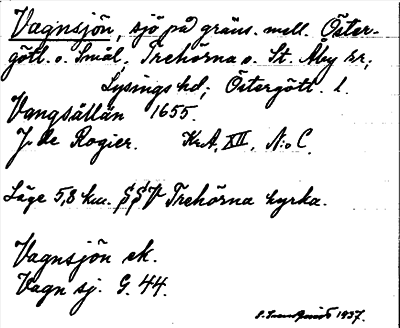 Vagnsjön, sjö på gräns. mell. Öster-
götl. o. Smål. Trehörna o. St. Åby sr,
Lysings hd, Östergötl. l.
Vangsållän 1655.
J. de Rogier. KrA, XII, N:o C.
Läge 5,8 km. SSV Trehörna kyrka.
Vagnsjön ek.
Vagn sj. G. 44.
1937.